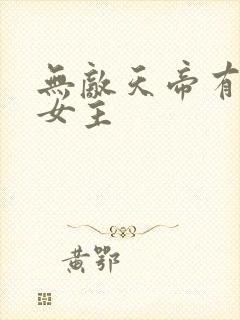 無敵天帝有
女主
黃鄂